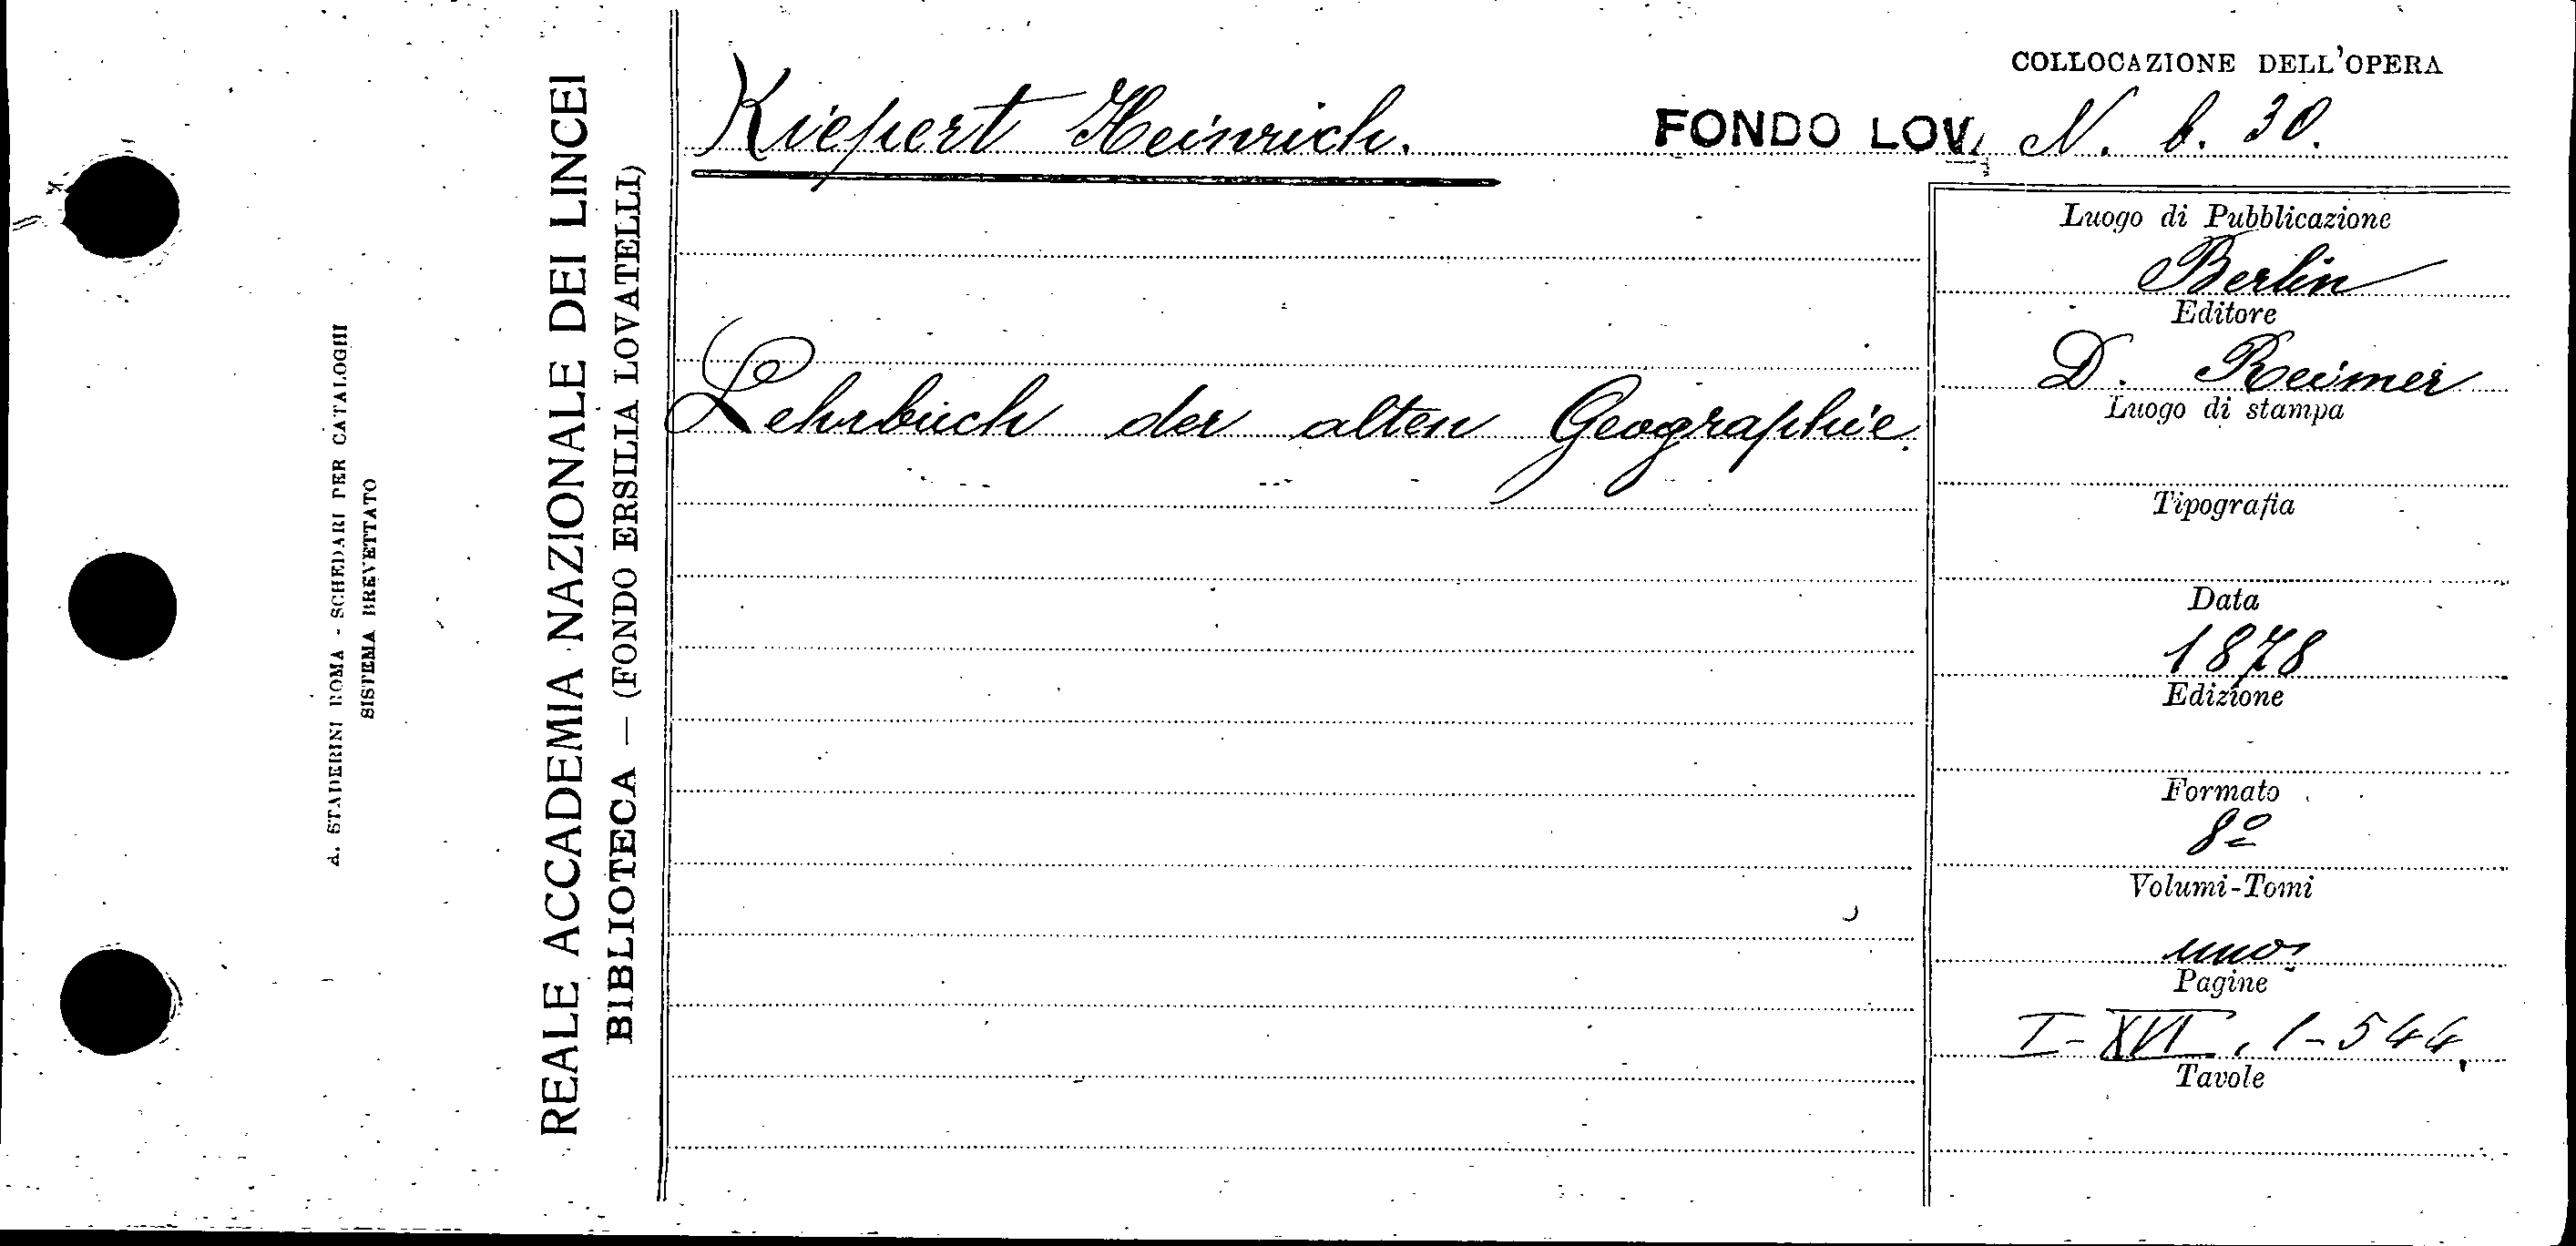 A. STADERINI ROMA - SCHEDARI PER CATALOGHI
SISTEMA BREVETTATO
REALE ACCADEMIA NAZIONALE DEI LINCEI
BIBLIOTECA — (FONDO ERSILIA LOVATELLI)
COLLOCAZIONE DELL'OPERA
Kiepert Heinrich. FONDO LOV. N. b. 30.
Lehrbuch der alten Geographie.
Luogo di Pubblicazione
Berlin
Editore
D. Reimer
Luogo di stampa
Tipografia
Data
1878
Edizione
Formato
8º
Volumi-Tomi
uno.
Pagine
I-XVI, 1-544.
Tavole